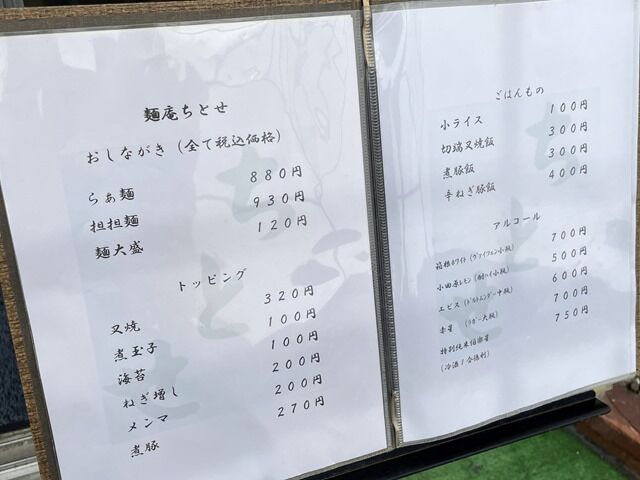 麺庵ちとせ
おしながき (全て税込価格)
らぁ麺 880円
担担麺 930円
麺大盛 120円
トッピング
叉焼 320円
煮玉子 100円
海苔 100円
ねぎ増し 200円
メンマ 200円
煮豚 270円
ごはんもの
小ライス 100円
切端叉焼飯 300円
煮豚飯 300円
辛ねぎ豚飯 400円
アルコール
箱根ホワイト (ヴァイツェン小瓶) 700円
小田原レモン (酎ハイ小瓶) 500円
エビス (ドルトムンダー中瓶) 600円
赤星 (ラガー大瓶) 700円
特別純米伯楽星 750円
(冷酒1合徳利)
ちとせ
ちとせ